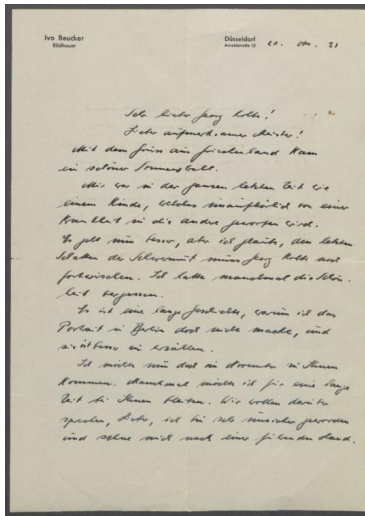 Ivo Beucker
Bildhauer
Düsseldorf
Arnoldstraße 12
20. Okt. 31
Sehr lieber Georg Kolbe!
Lieber aufmerksamer Meister!
Mit dem Gruss aus Griechenland kam
ein schöner Sonnenstrahl.
Mir war in der ganzen letzten Zeit wie
einem Kinde, welches unaufhörlich von einer
Krankheit in die andere geworfen wird.
Es geht nun besser, aber ich glaube, den letzten
Schatten der Schwermut muss Georg Kolbe noch
fortwischen. Ich hatte manchmal die Schön-
heit vergessen.
Es ist eine lange Geschichte, warum ich das
Portrait in Berlin doch nicht mache, und
sie ist besser zu erzählen.
Ich möchte nun doch im November zu Ihnen
kommen. Manchmal möchte ich für eine lange
Zeit bei Ihnen bleiben. Wir wollen darüber
sprechen, ich bin sehr unsicher geworden
und sehne mich nach einer führenden Hand.